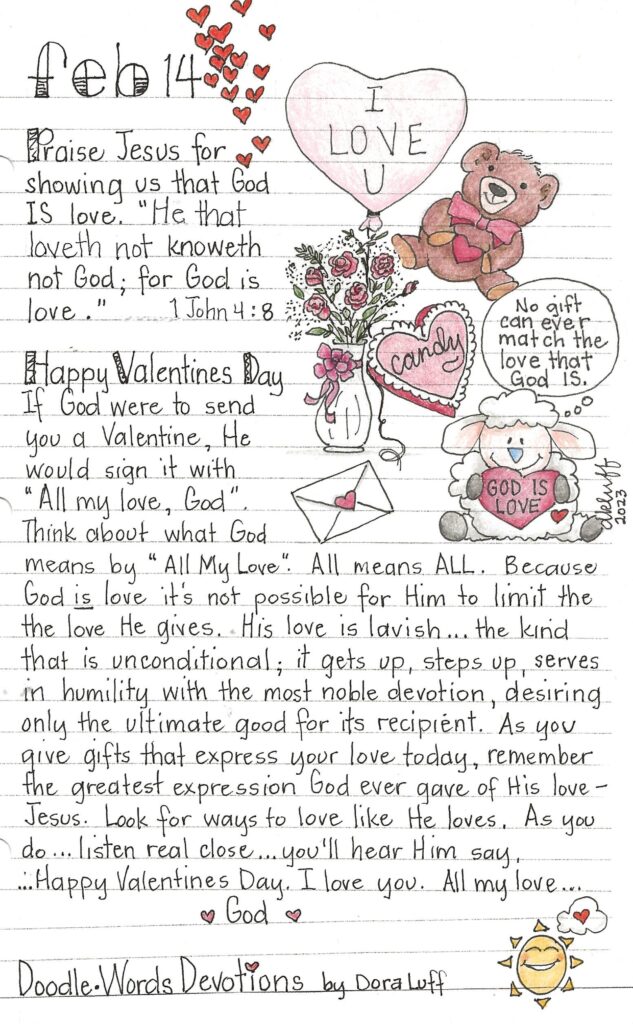 feb 14
I
LOVE
U
Praise Jesus for
showing us that God
IS love. "He that
loveth not knoweth
not God; for God is
love." 1 John 4:8
candy
No gift
can ever
match the
love that
God IS.
GOD IS
LOVE
dkluff
2023
Happy Valentines Day
If God were to send
you a Valentine, He
would sign it with
"All my love, God".
Think about what God
means by "All My Love". All means ALL. Because
God is love it's not possible for Him to limit the
the love He gives. His love is lavish... the kind
that is unconditional; it gets up, steps up, serves
in humility with the most noble devotion, desiring
only the ultimate good for its recipient. As you
give gifts that express your love today, remember
the greatest expression God ever gave of His love -
Jesus. Look for ways to love like He loves. As you
do... listen real close... you'll hear Him say,
...Happy Valentines Day. I love you. All my love...
God
Doodle·Words Devotions by Dora Luff